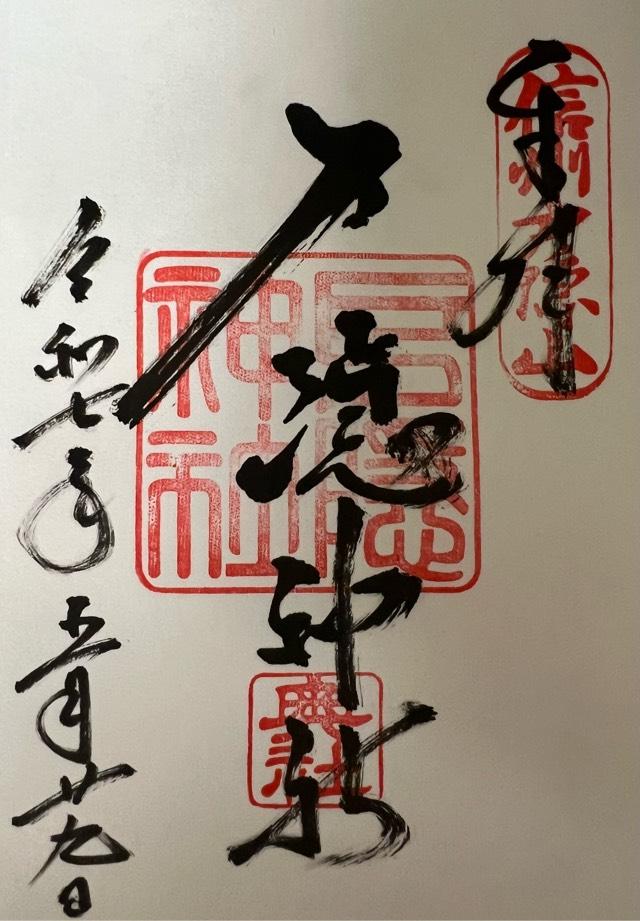 奉拝
信州戸隠山
戸隠神社
戸隠神社
奥社
令和七年五月廿九日